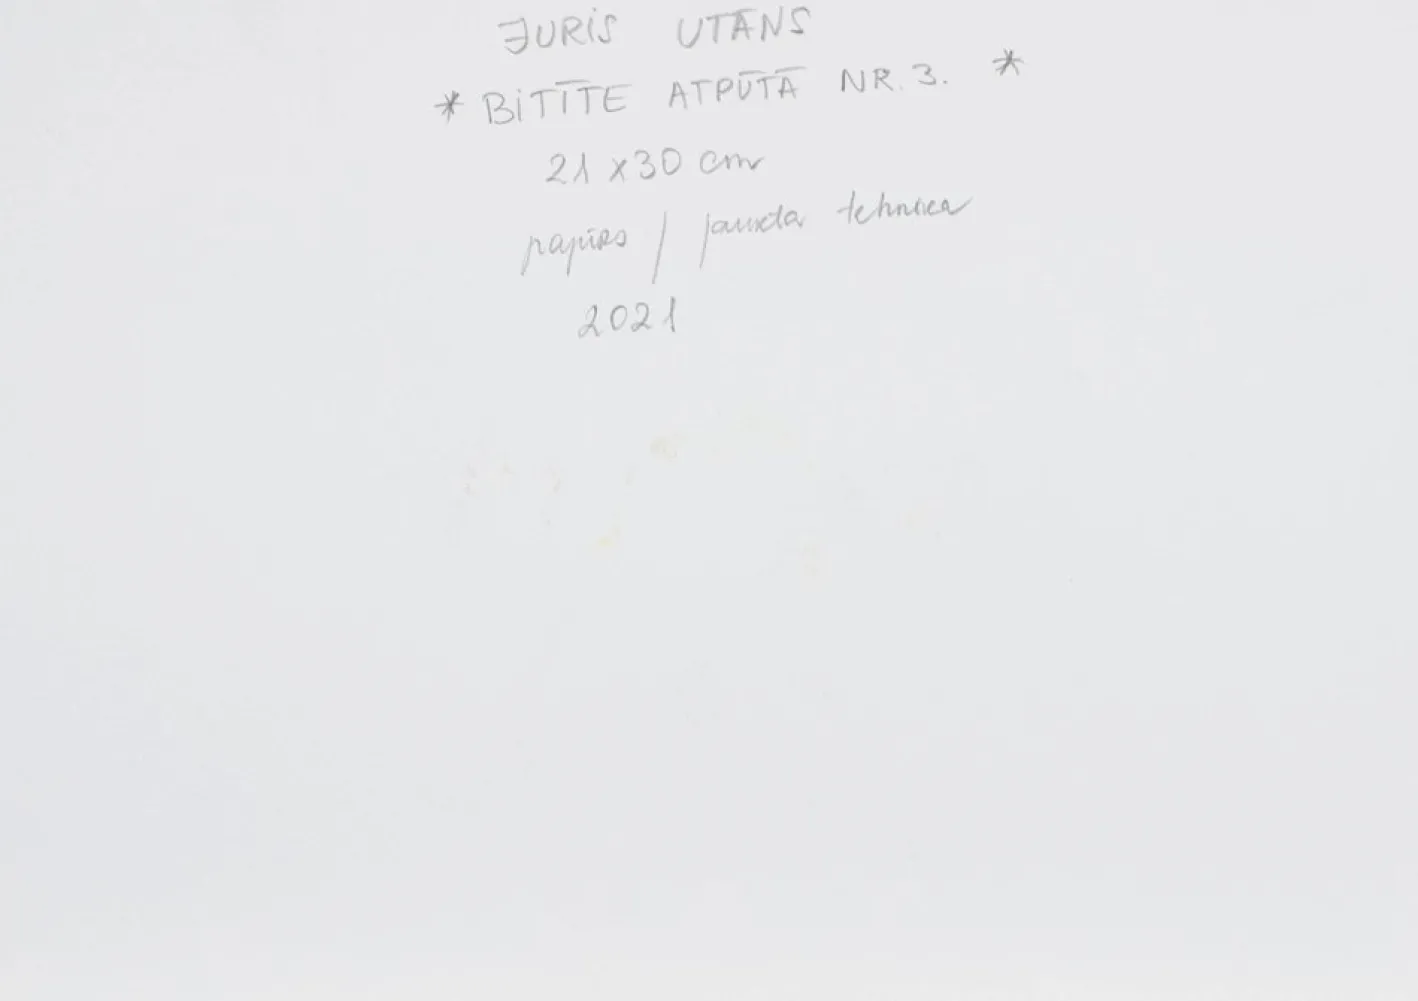 JURIS UTĀNS
* BITĪTE ATPŪTĀ NR. 3. *
21 x 30 cm
papīrs / jaukta tehnika
2021